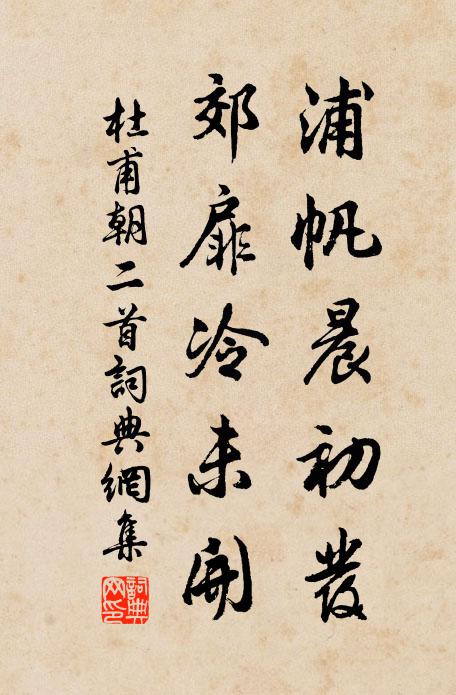 浦帆晨初發
郊扉冷未開
杜甫朝二首詞典網集
詞典
网印